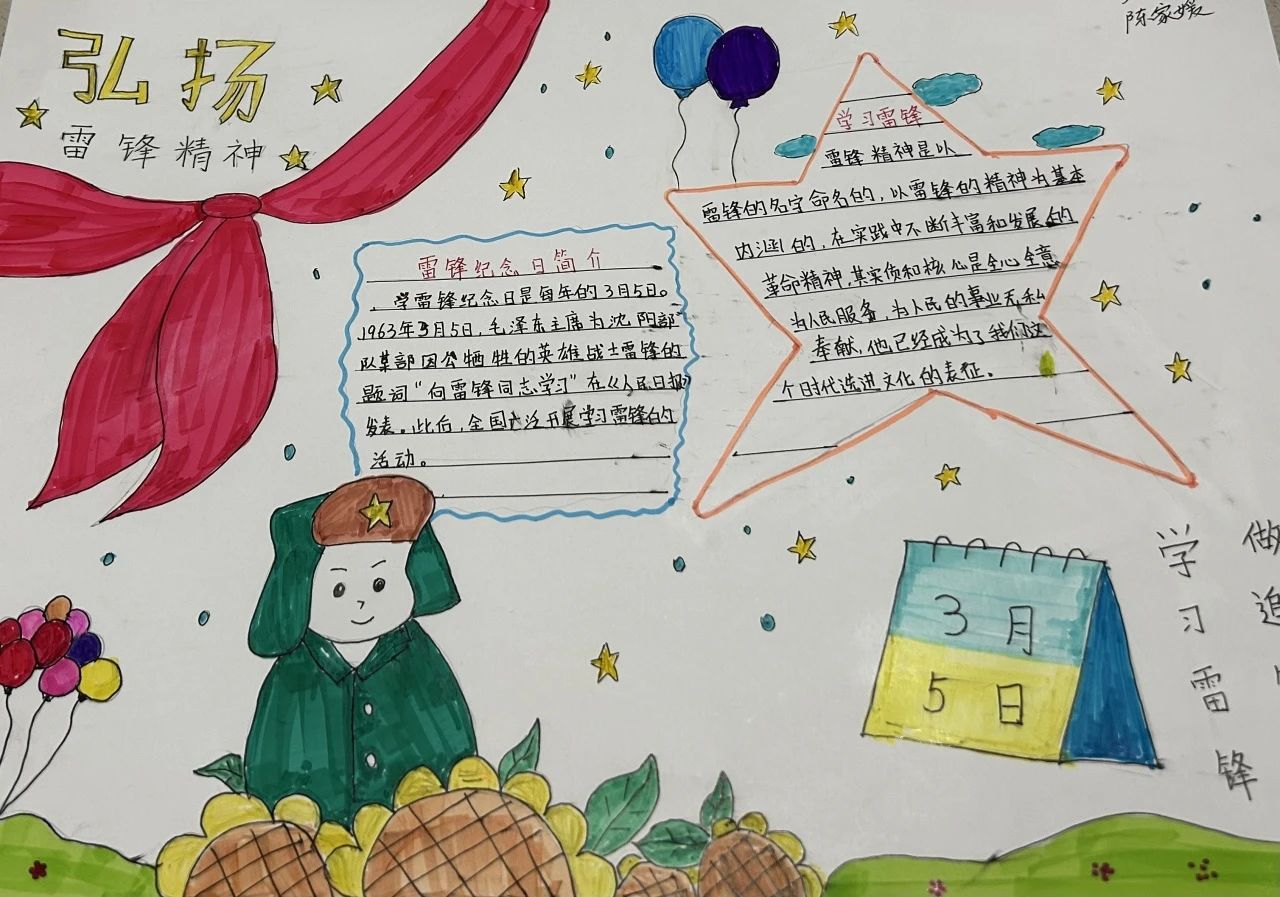 陈家媛
弘扬
雷锋精神
雷锋纪念日简介
学雷锋纪念日是每年的3月5日。
1963年3月5日,毛泽东主席为沈阳部
队某部因公牺牲的英雄战士雷锋的
题词“向雷锋同志学习”在《人民日报》
发表。此后,全国广泛开展学习雷锋的
活动。
学习雷锋
雷锋精神是以
雷锋的名字命名的,以雷锋的精神为基本
内涵的,在实践中不断丰富和发展的
革命精神,其实质和核心是全心全意
为人民服务,为人民的事业无私
奉献,他已经成为了我们这
个时代先进文化的表征。
3月
5日
学习雷锋
做追